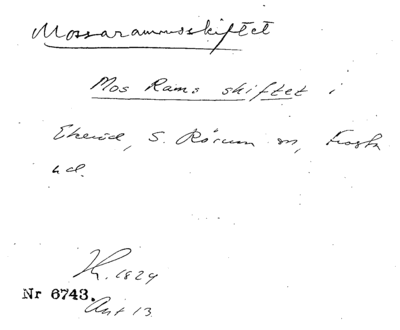 Mossarammsskiftet
Mos Rams skiftet i
Ekeröd, S. Rörum sn, Frosta
hd.
Th. 1824
Nr 6743.
Akt 13.